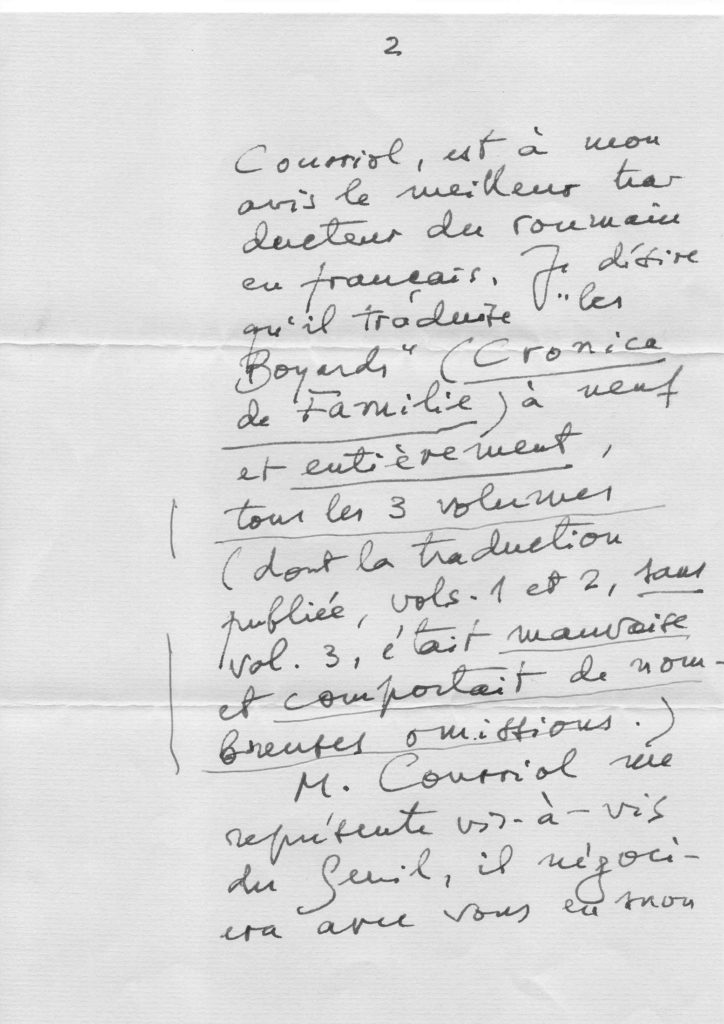 2
Courriol, est à mon
avis le meilleur tra-
ducteur du roumain
en français. Je désire
qu'il traduise "les
Boyards" (Cronica
de Familie) à neuf
et entièrement,
tous les 3 volumes
(dont la traduction
publiée, vols. 1 et 2, sans
vol. 3, était mauvaise
et comportait de nom-
breuses omissions.)
M. Courriol me
représente vis-à-vis
du Seuil, il négoci-
era avec vous en mon